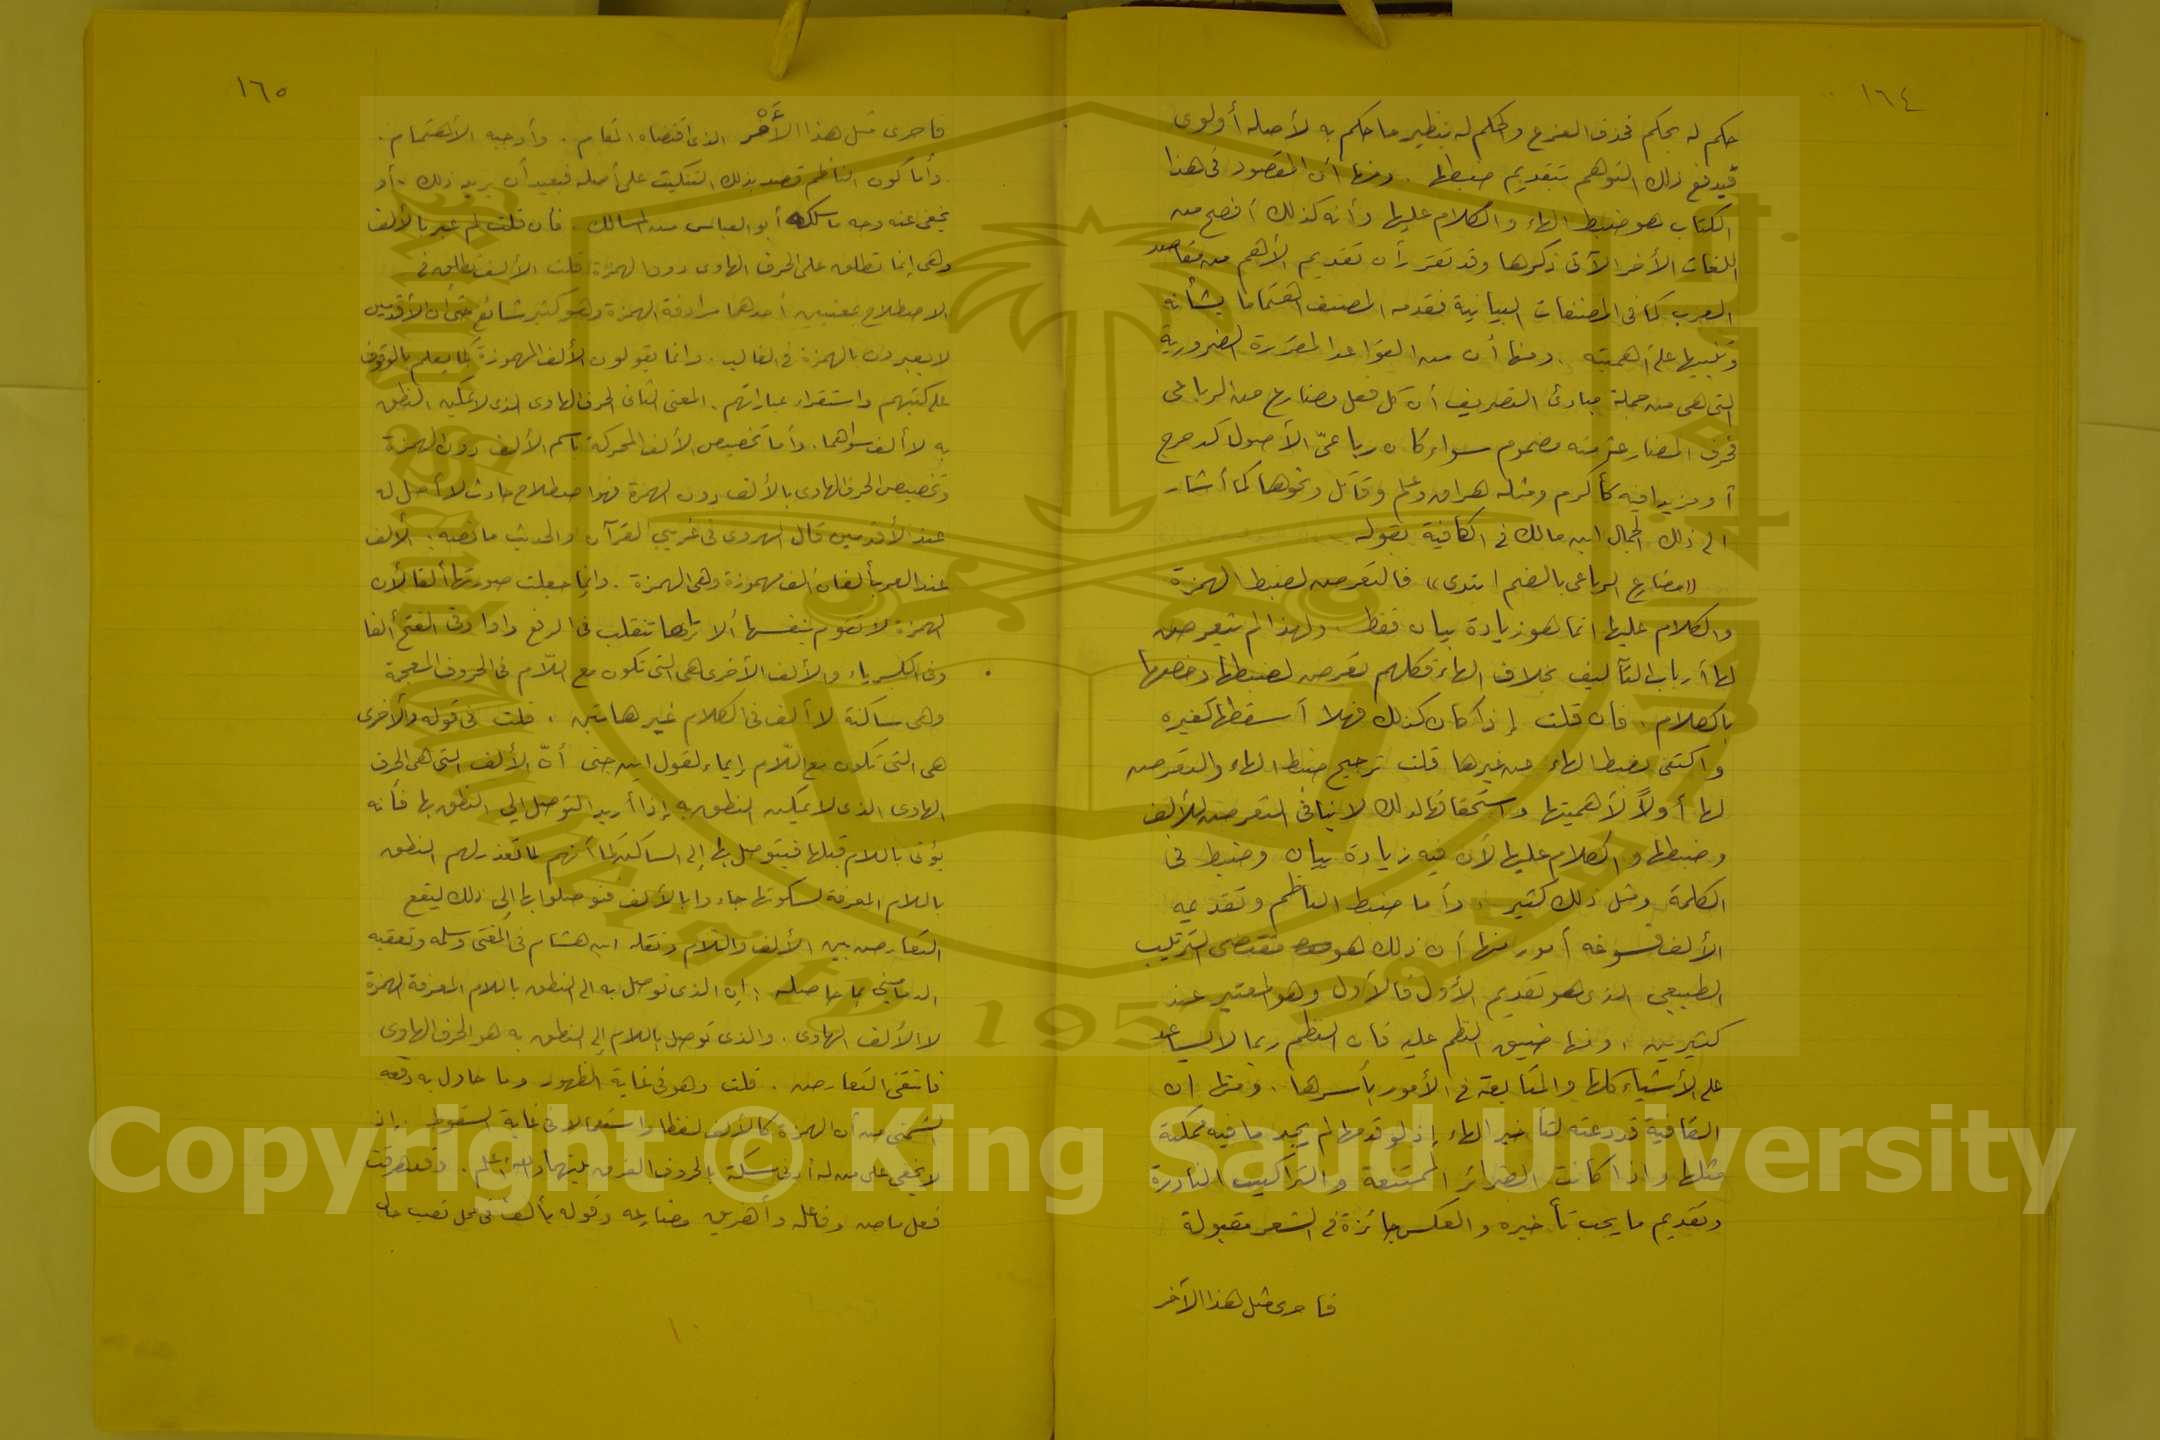 ١٦٤
حكم له بحكم فحذف الفرع والحكم له بنظير ما حكم به لأصله أولوى
فيدفع ذلك التوهم بتقديم ضبطها . ومنها أن المقصود فى هذا
الكتاب هو ضبط الهاء والكلام عليها وأنه كذلك أفصح من
اللغات الأخر الآتى ذكرها وقد تقرر أن تقديم الأهم من مقاصد
العرب كما فى المصنفات البيانية فقدمه المصنف اهتماما بشأنه
وتنبيها على أهميته . ومنها أن من القواعد المقررة الضرورية
التى هى من جملة مبادئ التصريف أن كل فعل مضارع من الرباعى
فحرف المضارعة منه مضموم سواء كان رباعىّ الأصول كدحرج
أو مزيدا فيه كأكرم ومثله هراق وعلم وقاتل ونحوها كما أشار
الى ذلك الجمال ابن مالك فى الكافية بقوله
«مضارع الرباعى بالضم ابتدى» فالتعرض لضبط الهمزة
والكلام عليها انما هو زيادة بيان فقط . ولهذا لم يتعرض
لها أرباب التآليف بخلاف الهاء فكلهم تعرض لضبطها وخصها
بالكلام . فان قلت إذا كان كذلك فهلا أسقطها كغيره
واكتفى بضبط الهاء من غيرها قلت ترجيح ضبط الهاء والتعرض
لها أولاً لأهميتها واستحقاقها لذلك لا ينافى التعرض للألف
وضبطها والكلام عليها لأن فيه زيادة بيان وضبط فى
الكلمة ومثل ذلك كثير . وأما ضبط الناظم وتقديمه
الألف فسوغه أمور منها أن ذلك هو مقتضى الترتيب
الطبيعى الذى هو تقديم الأول فالأول وهو المعتبر عند
كثيرين . ومنها ضيق النظم عليه فان النظم ربما لا يساعد
على الأشياء كلها والمتابعة فى الأمور بأسرها . ومنها ان
القافية قد دعته لتأخير الهاء إذ لو قدمها لم يجد ما فيه تمكنه
مثلها واذا كانت الضرائر الممتنعة والتراكيب النادرة
وتقديم ما يجب تأخيره والعكس جائزة فى الشعر مقبولة
فاحرى مثل هذا الآخر
١٦٥
فاحرى مثل هذا الأَخْر الذى اقتضاه المقام . وأوجبه الأهتمام .
وأما كون الناظم قصد بذلك التنكيت على أصله فبعيد أن يريد ذلك . أو
يخفى عنه وجه ما سلكه أبو العباس من المسالك . فان قلت لم عبر بالألف
وهى إنما تطلق على الحرف الهاوى دون الهمزة قلت الألف يطلق فى
الاصطلاح بمعنيين أحدهما مرادفة الهمزة وهو كثير شائع حتى أن الأقدمين
لا يعبرون بالهمزة فى الغالب . وانما يقولون الألف المهموزة كما يعلم بالوقوف
على كتبهم واستقراء عباراتهم . المعنى الثانى الحرف الهاوى الذى لا يمكن النطق
به لا ألف سواهما . وأما تخصيص الألف المحركة باسم الألف دون الهمزة
وتخصيص الحرف الهاوى بالألف دون الهمزة فهو اصطلاح حادث لا أصل له
عند الأقدمين قال الهروى فى غريبى القرآن والحديث ما نصه : الألف
عند العرب ألفان ألف مهموزة وهى الهمزة . وانما جعلت صورتها ألفا لأن
الهمزة لا تقوم بنفسها ألا تراها تنقلب فى الرفع واوا وفى الفتح ألفا
وفى الكسر ياء والألف الأخرى هى التى تكون مع اللّام فى الحروف المعجمة
وهى ساكنة لا ألف فى الكلام غير هاتين . قلت فى قوله والأخرى
هى التى تكون مع اللّام إيماء لقول ابن جنى أنّ الألف التى هى الحرف
الهاوى الذى لا يمكن النطق به إذا أريد التوصل الى النطق بها فأنه
يؤتى باللام قبلها فيتوصل بها إلى الساكن كما أنهم لما تعذر لهم النطق
باللام المعرفة لسكونها جاءوا بالألف فتوصلوا بها الى ذلك ليقع
التعارض بين الألف واللام ونقله ابن هشام فى المغنى وسلمه وتعقبه
الدمامينى بما حاصله : إن الذى توصل به الى النطق باللام المعرفة الهمزة
لا الألف الهاوى . والذى توصل باللام إلى النطق به هو الحرف الهاوى
فانتفى التعارض . قلت وهو فى غاية الظهور وما حاول به دفعه
الشمنى من أن الهمزة كالألف لفظا واستعمالا فى غاية السقوط . إذ
لا يخفى على من له أدنى مسكة بالحروف الفرق بينهما والله أعلم . وقد هرقت
فعل ماض وفاعله وأهريق مضارعه وقوله بألف فى محل نصب حال
Copyright © King Saud University
1957